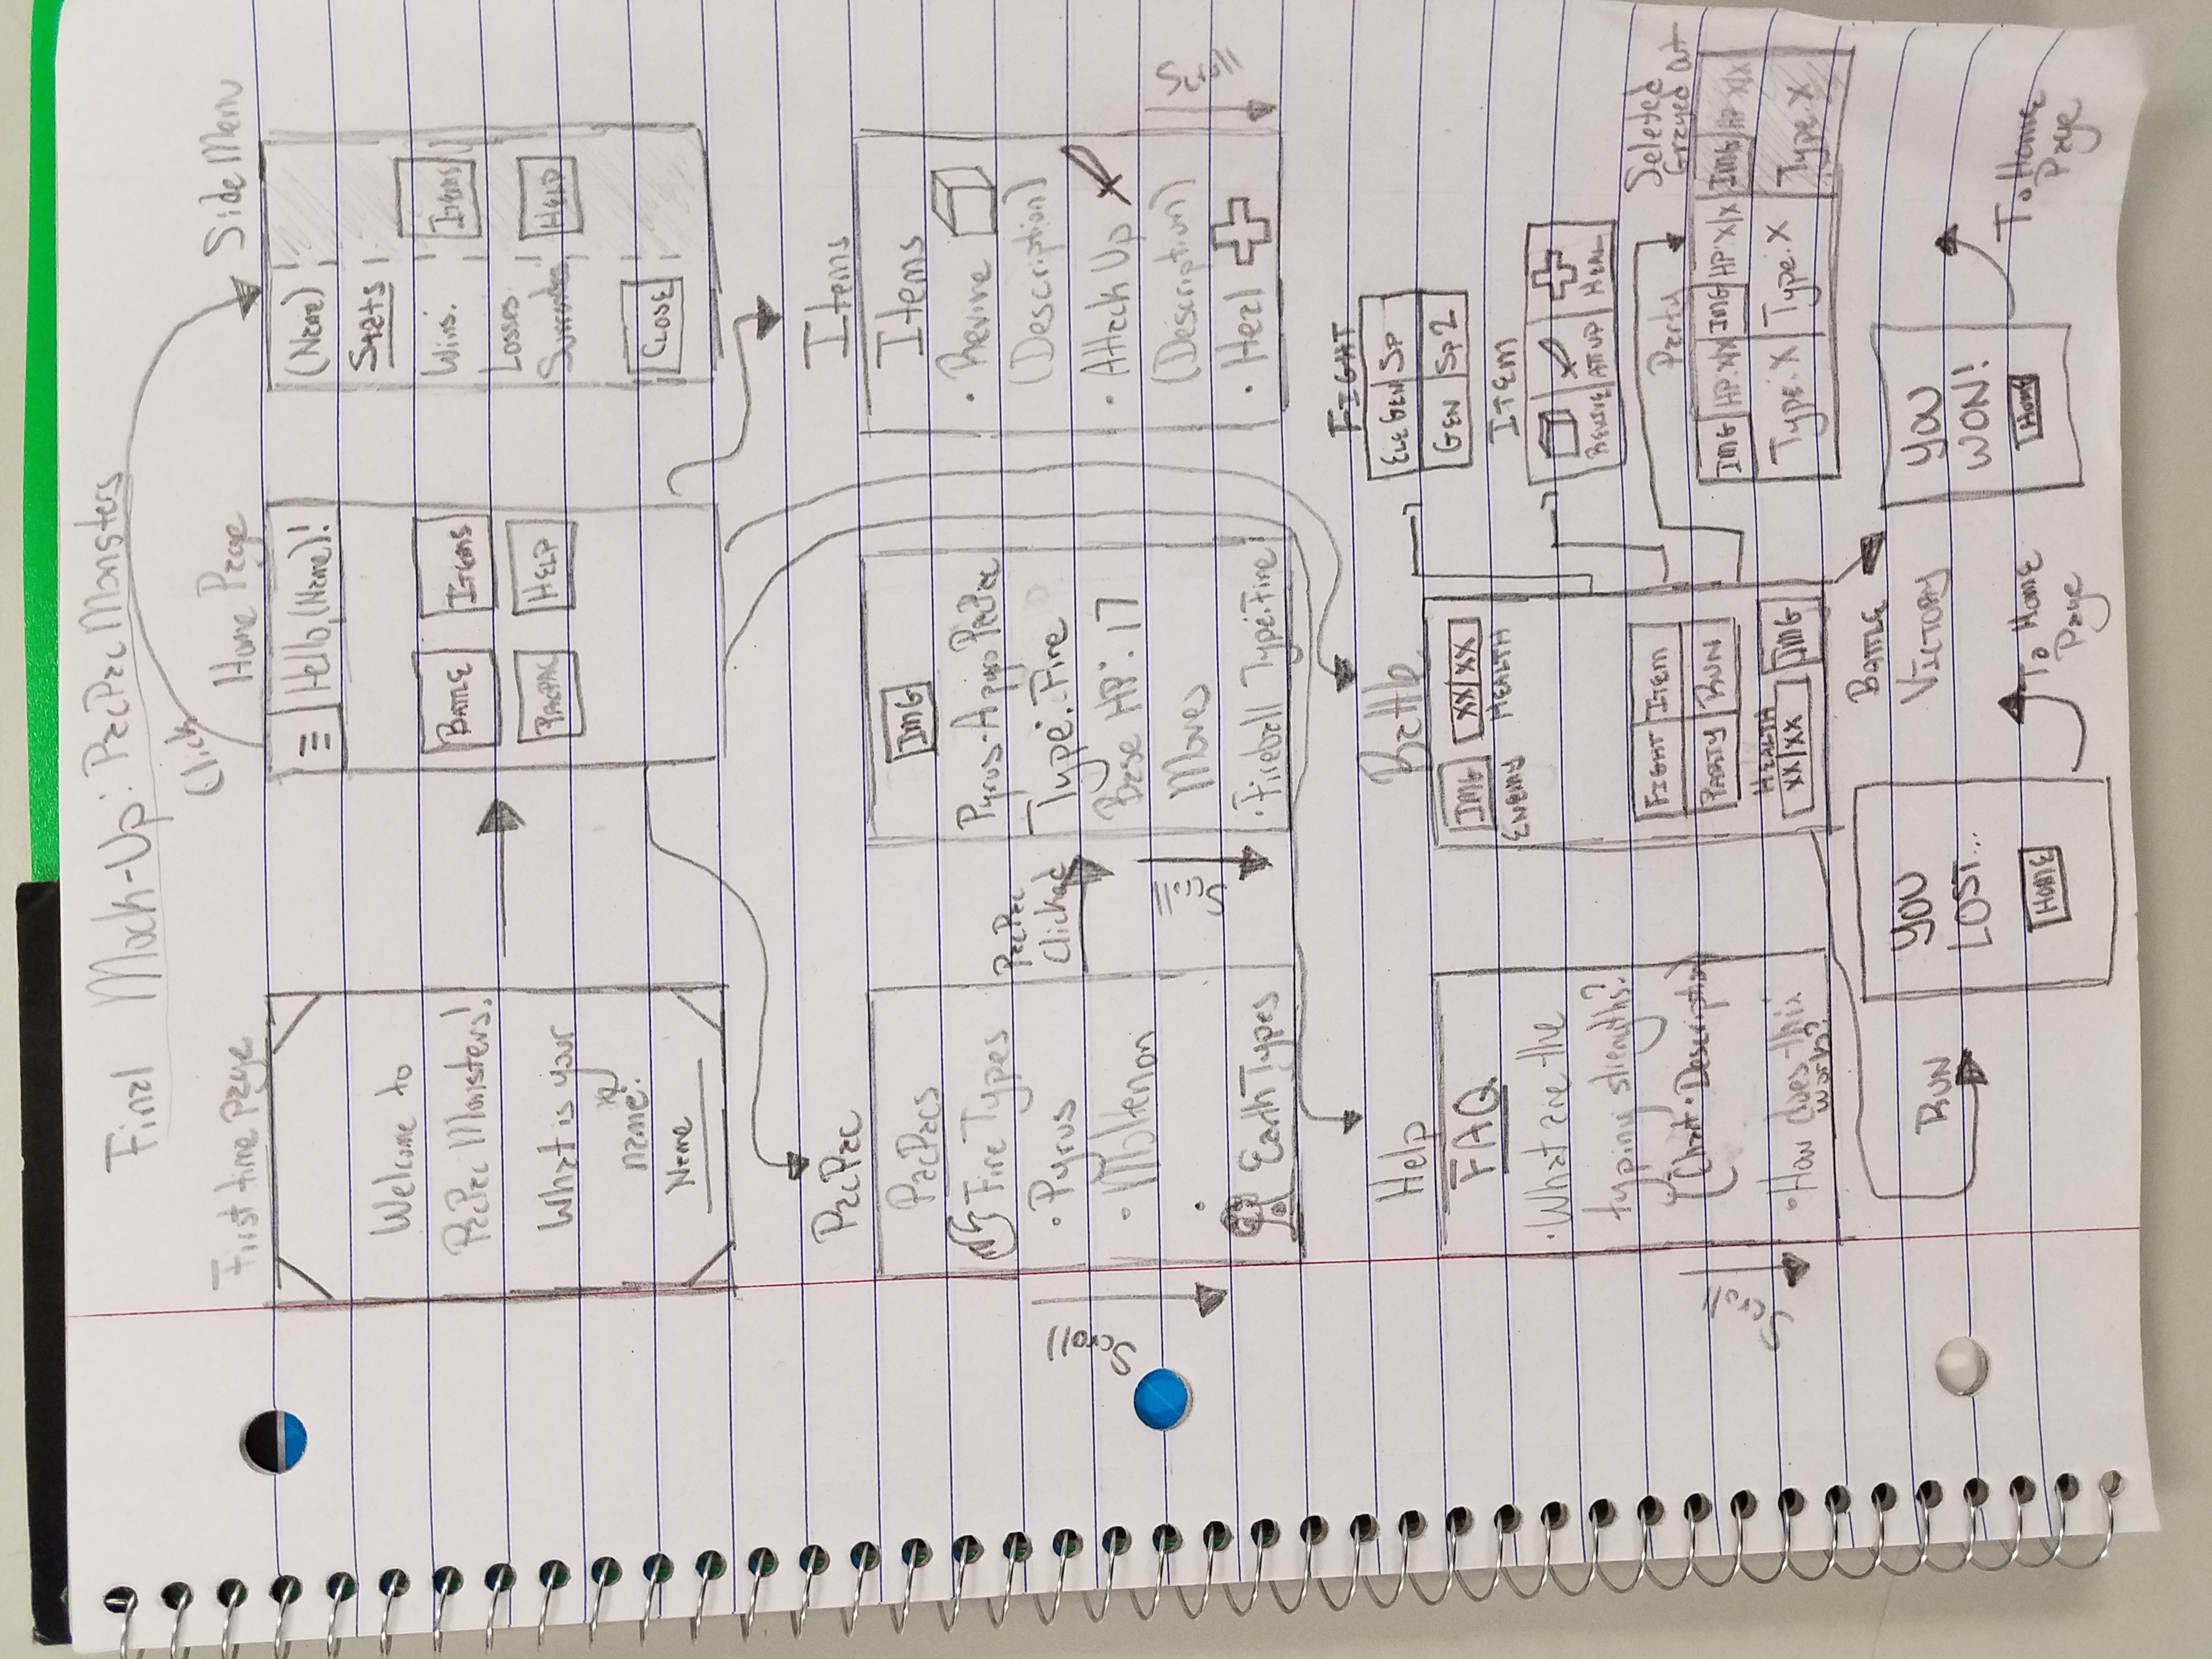 Final Mock-Up: PacPac Monsters
Click
First time page
Home Page
Side Menu
Welcome to
PacPac Monsters!
What is your
name?
Name
☰ Hello, (Name)!
BATTLE ITEMS
PACPAC HELP
(Name)
Stats
Wins:
Losses
Surrenders
CLOSE
ITEMS
HELP
PacPac
PacPacs
Fire Types
• Pyrus
• Moltenon
•
Earth Types
Scroll
PacPac
Clicked
IMG
Pyrus - A pyro PacPac
Type: Fire
Base HP: 17
Moves
• Fireball Type: Fire
Scroll
Items
Items
• Revive
(Description)
• Attack Up
(Description)
• Heal
Scroll
Help
FAQ
• What are the
typing strengths?
(Chart + Description)
• How does this
work?
Scroll
Battle
IMG XX/XX
ENEMY HEALTH
FIGHT ITEM
PARTY RUN
HEALTH
XX/XX IMG
FIGHT
ELE GEN SP
GEN SP2
ITEM
REVIVE ATT UP HEAL
Party
Seleted
Grayed Out
IMG HP: X/X IMG HP: X/X IMG HP: X/X
Type: X Type: X Type: X
RUN
YOU
LOST...
HOME
To HOME
Page
BATTLE
VICTORY
YOU
WON!
HOME
To HOME
Page